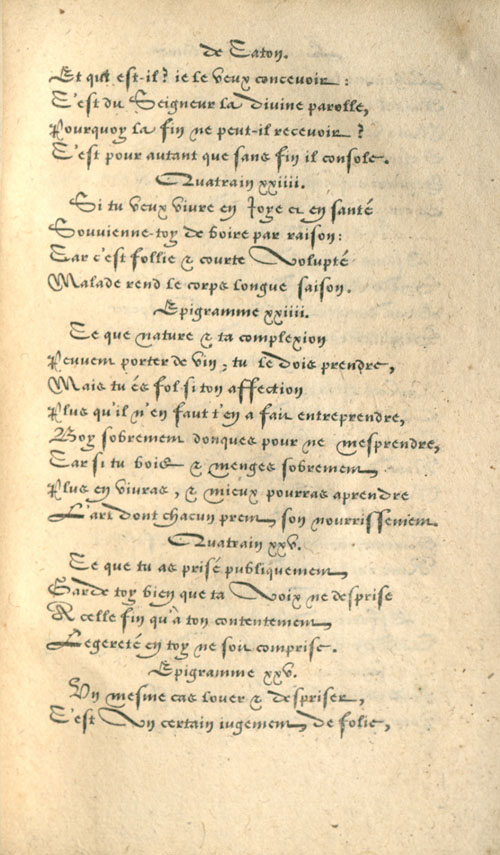 de Caton.
Et qui est-il? ie le veux concevoir :
C'est du Seigneur la divine parolle,
Pourquoy la fin ne peut-il recevoir ?
C'est pour autant que sans fin il console.
Quatrain xxiiii.
Si tu veux vivre en Joye et en santé
Souvienne-toy de boire par raison:
Car c'est follie & courte Volupté
Malade rend le corps longue saison.
Epigramme xxiiii.
Ce que nature & ta complexion
Peuvent porter de vin, tu le dois prendre,
Mais tu és fol si ton affection
Plus qu'il n'en faut t'en a fait entreprendre,
Boy sobrement donques pour ne mesprendre,
Car si tu bois & menges sobrement,
Plus en vivras, & mieux pourras aprendre
L'art dont chacun prent son nourrissement
Quatrain xxv.
Ce que tu as prisé publiquement,
Garde toy bien que ta Voix ne desprise
A celle fin qu'à ton contentement
Legereté en toy ne soit comprise.
Epigramme xxv.
Vn mesme cas louer & despriser,
C'est Vn certain iugement, de folie,